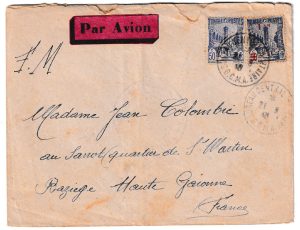 Par Avion
F. M
Madame Jean Colombié
au Sarrot quartier de St Martin
Raziège Haute Garonne
France